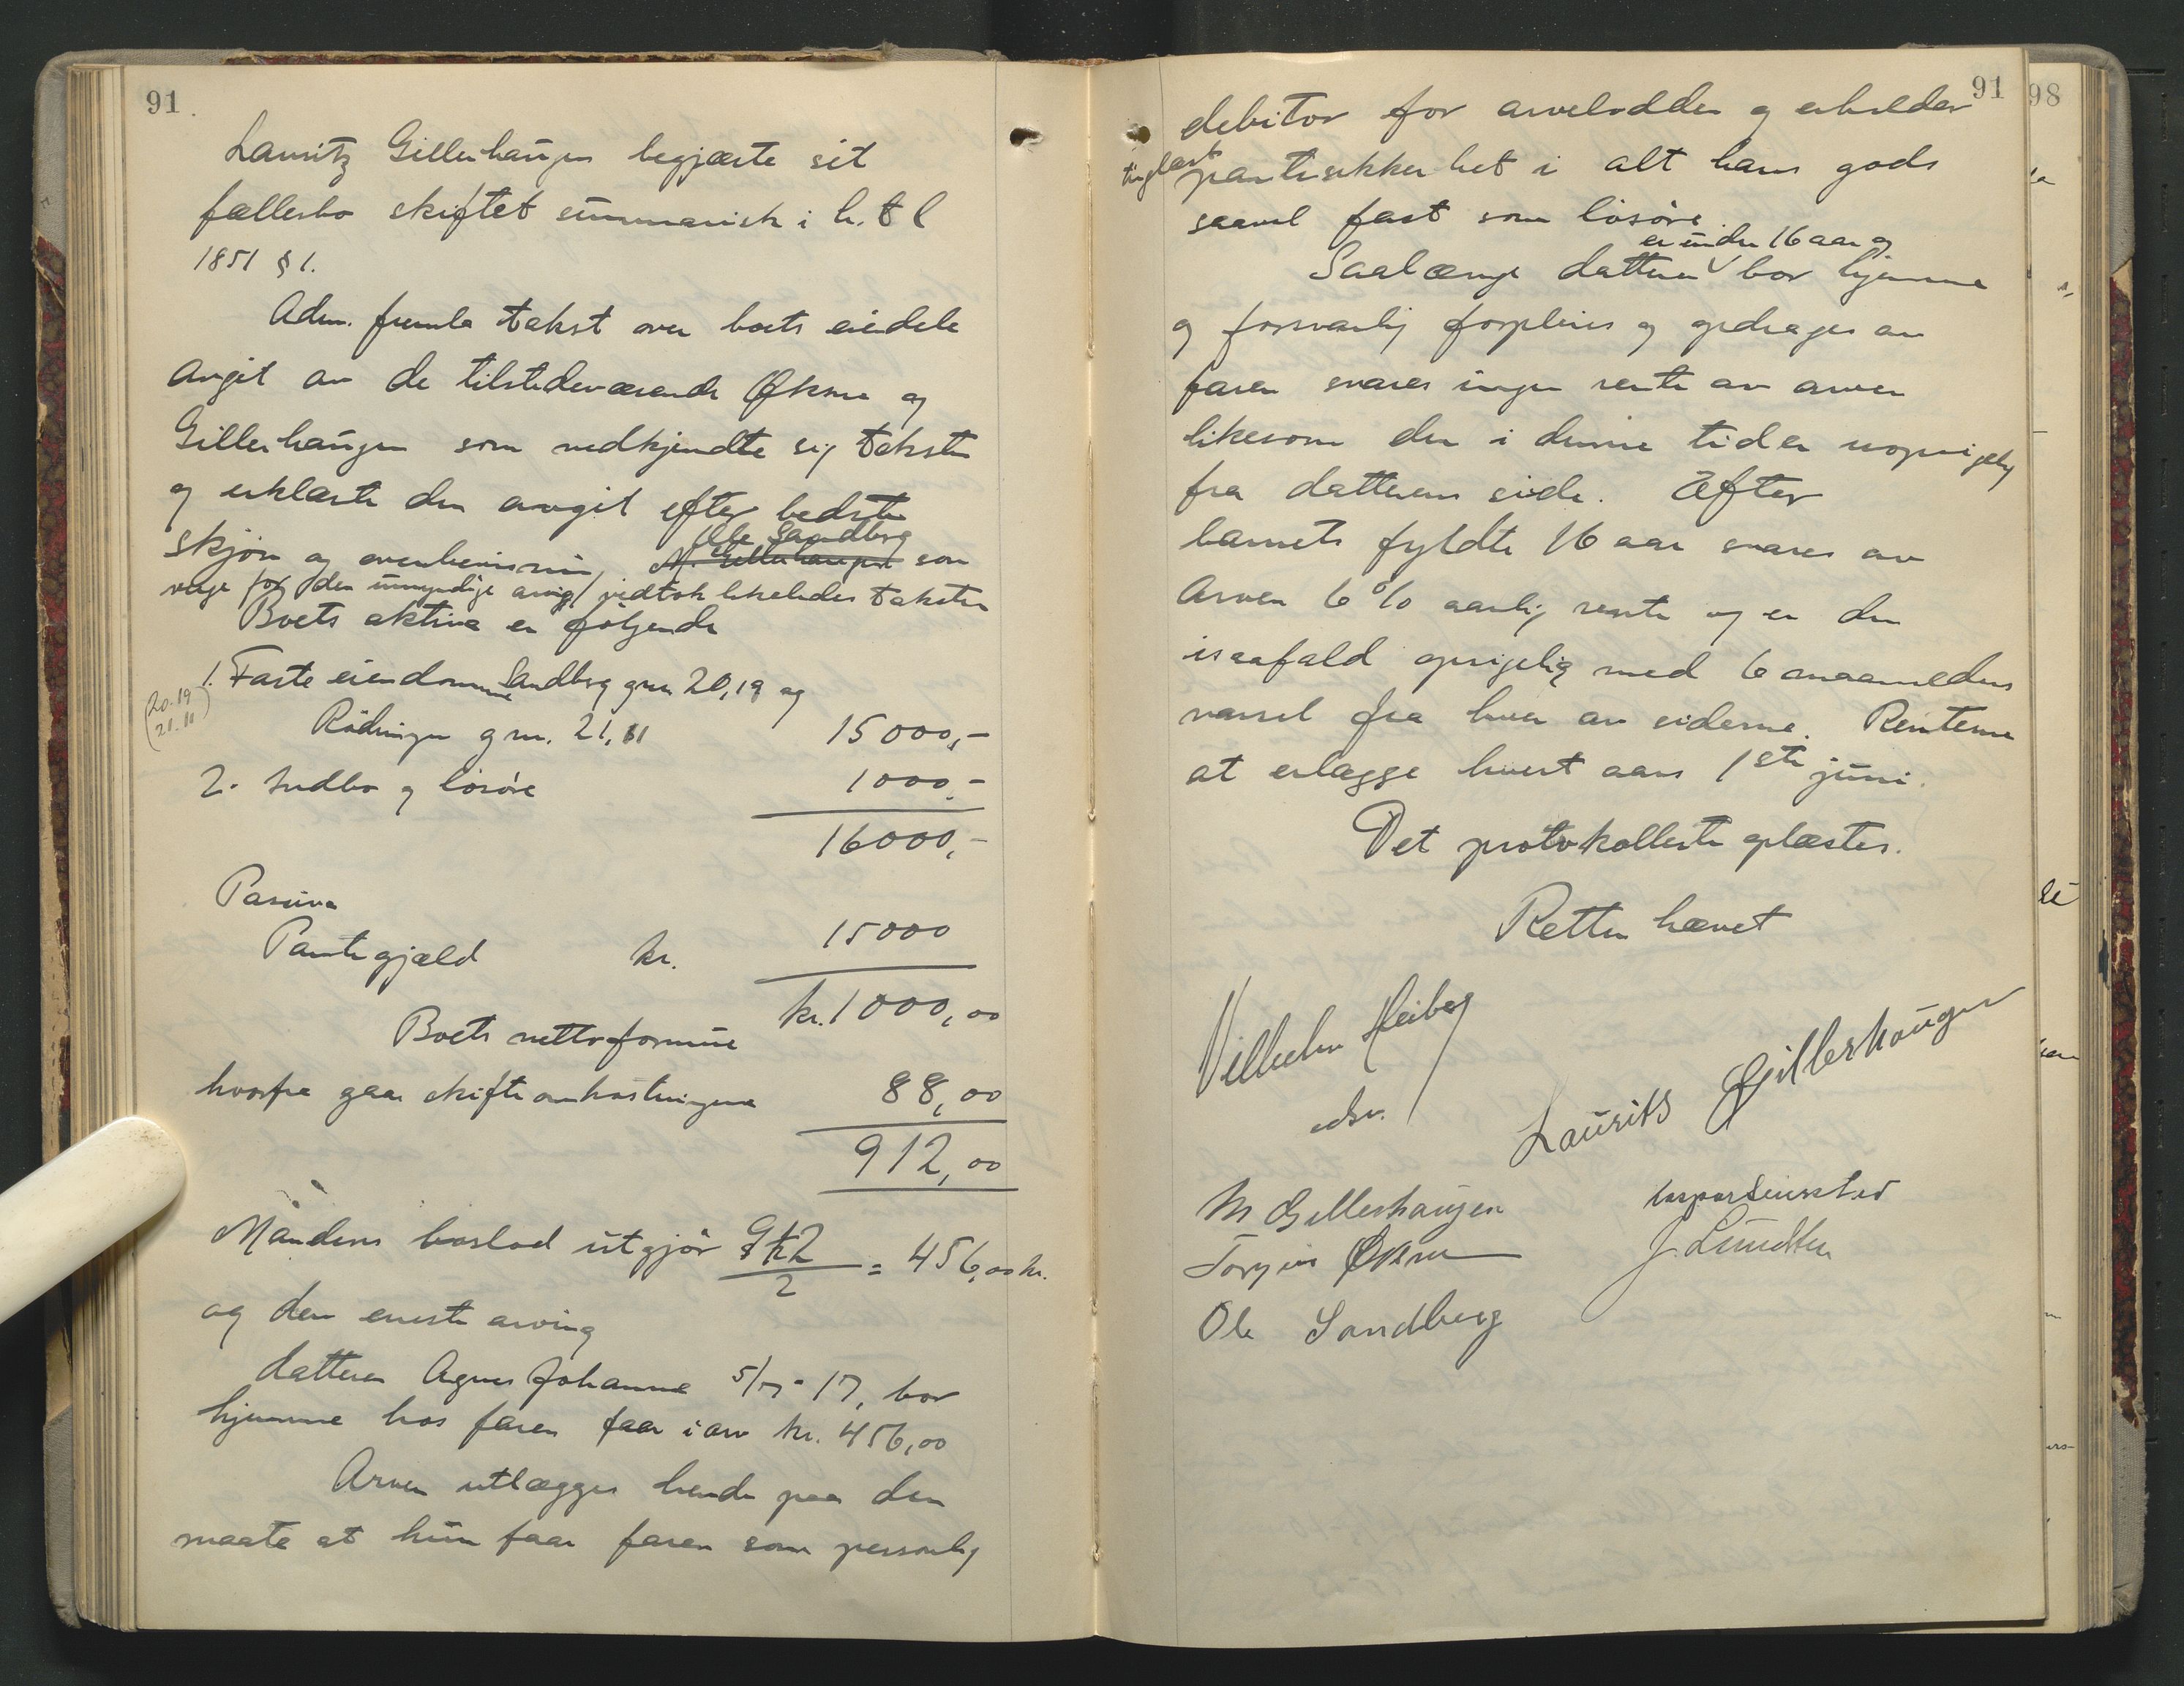 91
Lauritz Gillerhaugen begjærte sit
fællesbo skiftet summarisk i h. t l
1851 § 1.
Adm. fremla takst over boets eiendele
avgit av de tilstedeværende Øksne og
Gillerhaugen som vedkjendte sig taksten
og erklærte den avgit efter bedste
skjøn og overbevisning, Ole Sandberg M. Gillerhaugen som
verge for den umyndige arving vedtok likeledes taksten
Boets aktiva er følgende
1. Faste eiendomme Sandberg gnr. 20,19 og
(20.19
21.11)
Rødningen gnr. 21,11 15000,-
2. Indbo og løsøre 1000,-
16000,-
Passiva
Pantegjæld kr. 15000
Boets nettoformue kr. 1000,00
hvorfra gaar skifteomkostningene 88,00
912,00
Mandens boslod utgjør 912/2 = 456,00 kr.
og den eneste arving
datteren Agnes Johanne 5/7-17, bor
hjemme hos faren faar i arv kr. 456,00
Arven utlægges hende paa den
maate at hun faar faren som personlig
91
debitor for arvelodden og erholder
tinglæst
pantesikkerhet i alt hans gods
saavel fast som løsøre.
er under 16 aar og
Saalænge datteren bor hjemme
og forsvarlig forpleies og opdrages av
faren svares ingen rente av arven
likesom den i denne tid er uopsigelig
fra datterens side. Efter
barnets fyldte 16 aar svares av
Arven 6 % aarlig rente og er den
isaafald opsigelig med 6 maaneders
varsel fra hver av siderne. Renterne
at erlægge hvert aars 1ste juni.
Det protokollerte oplæstes.
Retten hævet
Vilhelm Heiberg
Laurits Gjillerhaugen
M Gillerhaugen
Torgeir Øksne J. Lundten
Ole Sandberg
98